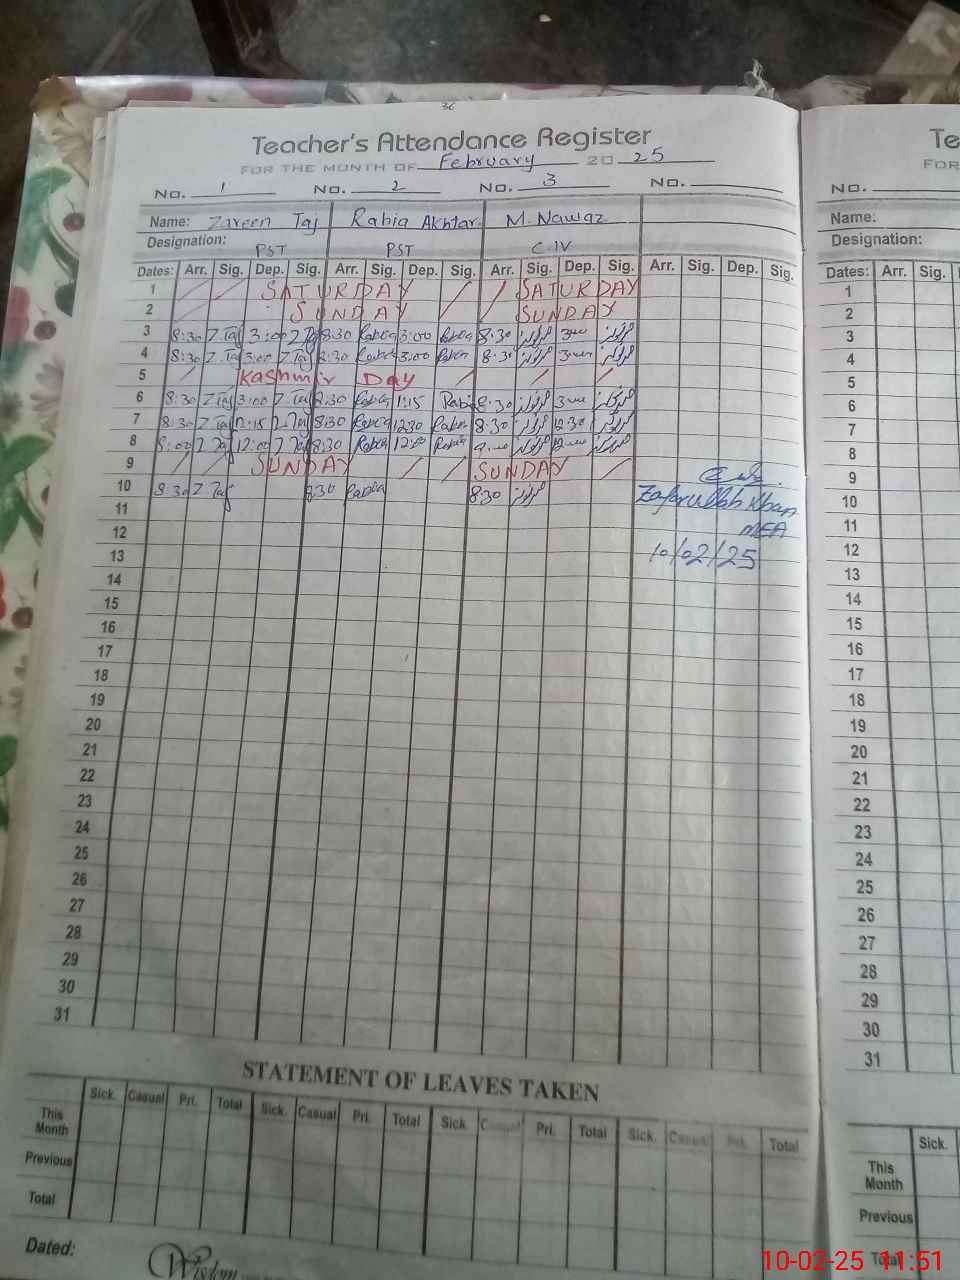 36
Teacher's Attendance Register
FOR THE MONTH OF February 20 25
No. 1 No. 2 No. 3 No.
Name: Zareen Taj Rabia Akhtar M. Nawaz
Designation: PST PST C-IV
Dates: Arr. Sig. Dep. Sig. Arr. Sig. Dep. Sig. Arr. Sig. Dep. Sig. Arr. Sig. Dep. Sig.
1 SATURDAY SATURDAY
2 SUNDAY SUNDAY
3 8:30 Z Taj 3:00 Z Taj 8:30 Rabia 3:00 Rabia 8:30
4 8:30 Z Taj 3:00 Z Taj 8:30 Rabia 3:00 Rabia 8:30
5 Kashmir Day
6 8:30 Z Taj 3:00 Z Taj 8:30 Rabia 1:15 Rabia 8:30
7 8:30 Z Taj 12:15 Z Taj 8:30 Rabia 12:30 Rabia 8:30 12:30
8 8:00 Z Taj 12:00 Z Taj 8:30 Rabia 12:00 Rabia
9 SUNDAY SUNDAY
10 8:30 Z Taj 8:30 Rabia 8:30
Zafarullah Khan
MEA
10/02/25
11
12
13
14
15
16
17
18
19
20
21
22
23
24
25
26
27
28
29
30
31
STATEMENT OF LEAVES TAKEN
Sick. Casual Pri. Total Sick. Casual Pri. Total Sick. Casual Pri. Total Sick. Casual Pri. Total
This Month
Previous
Total
Dated:
Wisdom
Te
FOR
No.
Name:
Designation:
Dates: Arr. Sig.
1
2
3
4
5
6
7
8
9
10
11
12
13
14
15
16
17
18
19
20
21
22
23
24
25
26
27
28
29
30
31
Sick.
This Month
Previous
Total
10-02-25 11:51